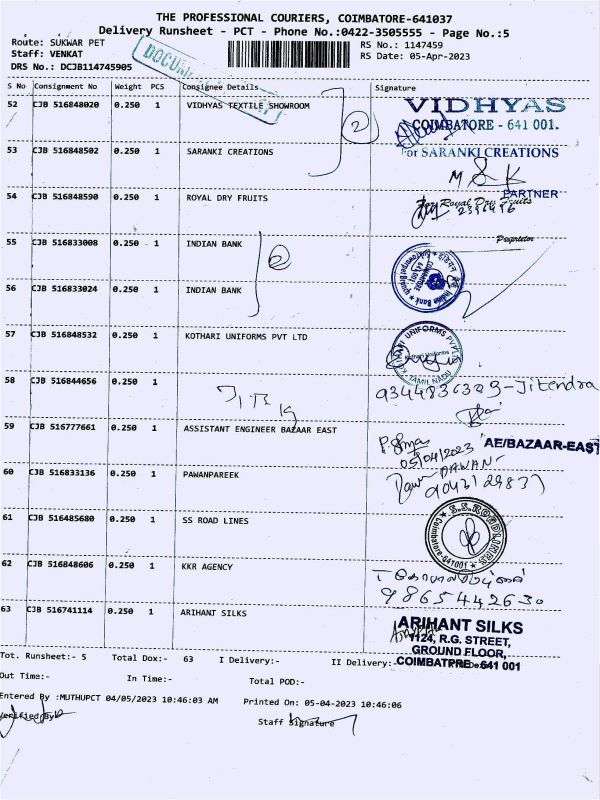 THE PROFESSIONAL COURIERS, COIMBATORE-641037
Delivery Runsheet - PCT - Phone No.:0422-3505555 - Page No.:5
Route: SUKWAR PET
RS No.: 1147459
Staff: VENKAT
RS Date: 05-Apr-2023
DRS No.: DCJB114745905
S No Consignment No Weight PCS Consignee Details Signature
52 CJB 516848020 0.250 1 VIDHYAS TEXTILE SHOWROOM
VIDHYAS
COIMBATORE - 641 001.
2
53 CJB 516848502 0.250 1 SARANKI CREATIONS
For SARANKI CREATIONS
PARTNER
54 CJB 516848590 0.250 1 ROYAL DRY FRUITS
For Royal Dry Fruits
Proprietor
55 CJB 516833008 0.250 1 INDIAN BANK
2
56 CJB 516833024 0.250 1 INDIAN BANK
Indian Bank
57 CJB 516848532 0.250 1 KOTHARI UNIFORMS PVT LTD
Kothari Uniforms
TAMIL NADU
58 CJB 516844656 0.250 1
9344836329-Jitendra
59 CJB 516777661 0.250 1 ASSISTANT ENGINEER BAZAAR EAST
AE/BAZAAR-EAST
05/04/2023
60 CJB 516833136 0.250 1 PAWANPAREEK
PAWAN
61 CJB 516485680 0.250 1 SS ROAD LINES
S.S.ROADLINES
Coimbatore-641001
62 CJB 516848606 0.250 1 KKR AGENCY
9865442630
63 CJB 516741114 0.250 1 ARIHANT SILKS
ARIHANT SILKS
1124, R.G. STREET,
GROUND FLOOR,
COIMBATPRE- 641 001
Tot. Runsheet:- 5 Total Dox:- 63 I Delivery:- II Delivery:-
Out Time:- In Time:- Total POD:-
Entered By :MUTHUPCT 04/05/2023 10:46:03 AM Printed On: 05-04-2023 10:46:06
Verified By
Staff Signature